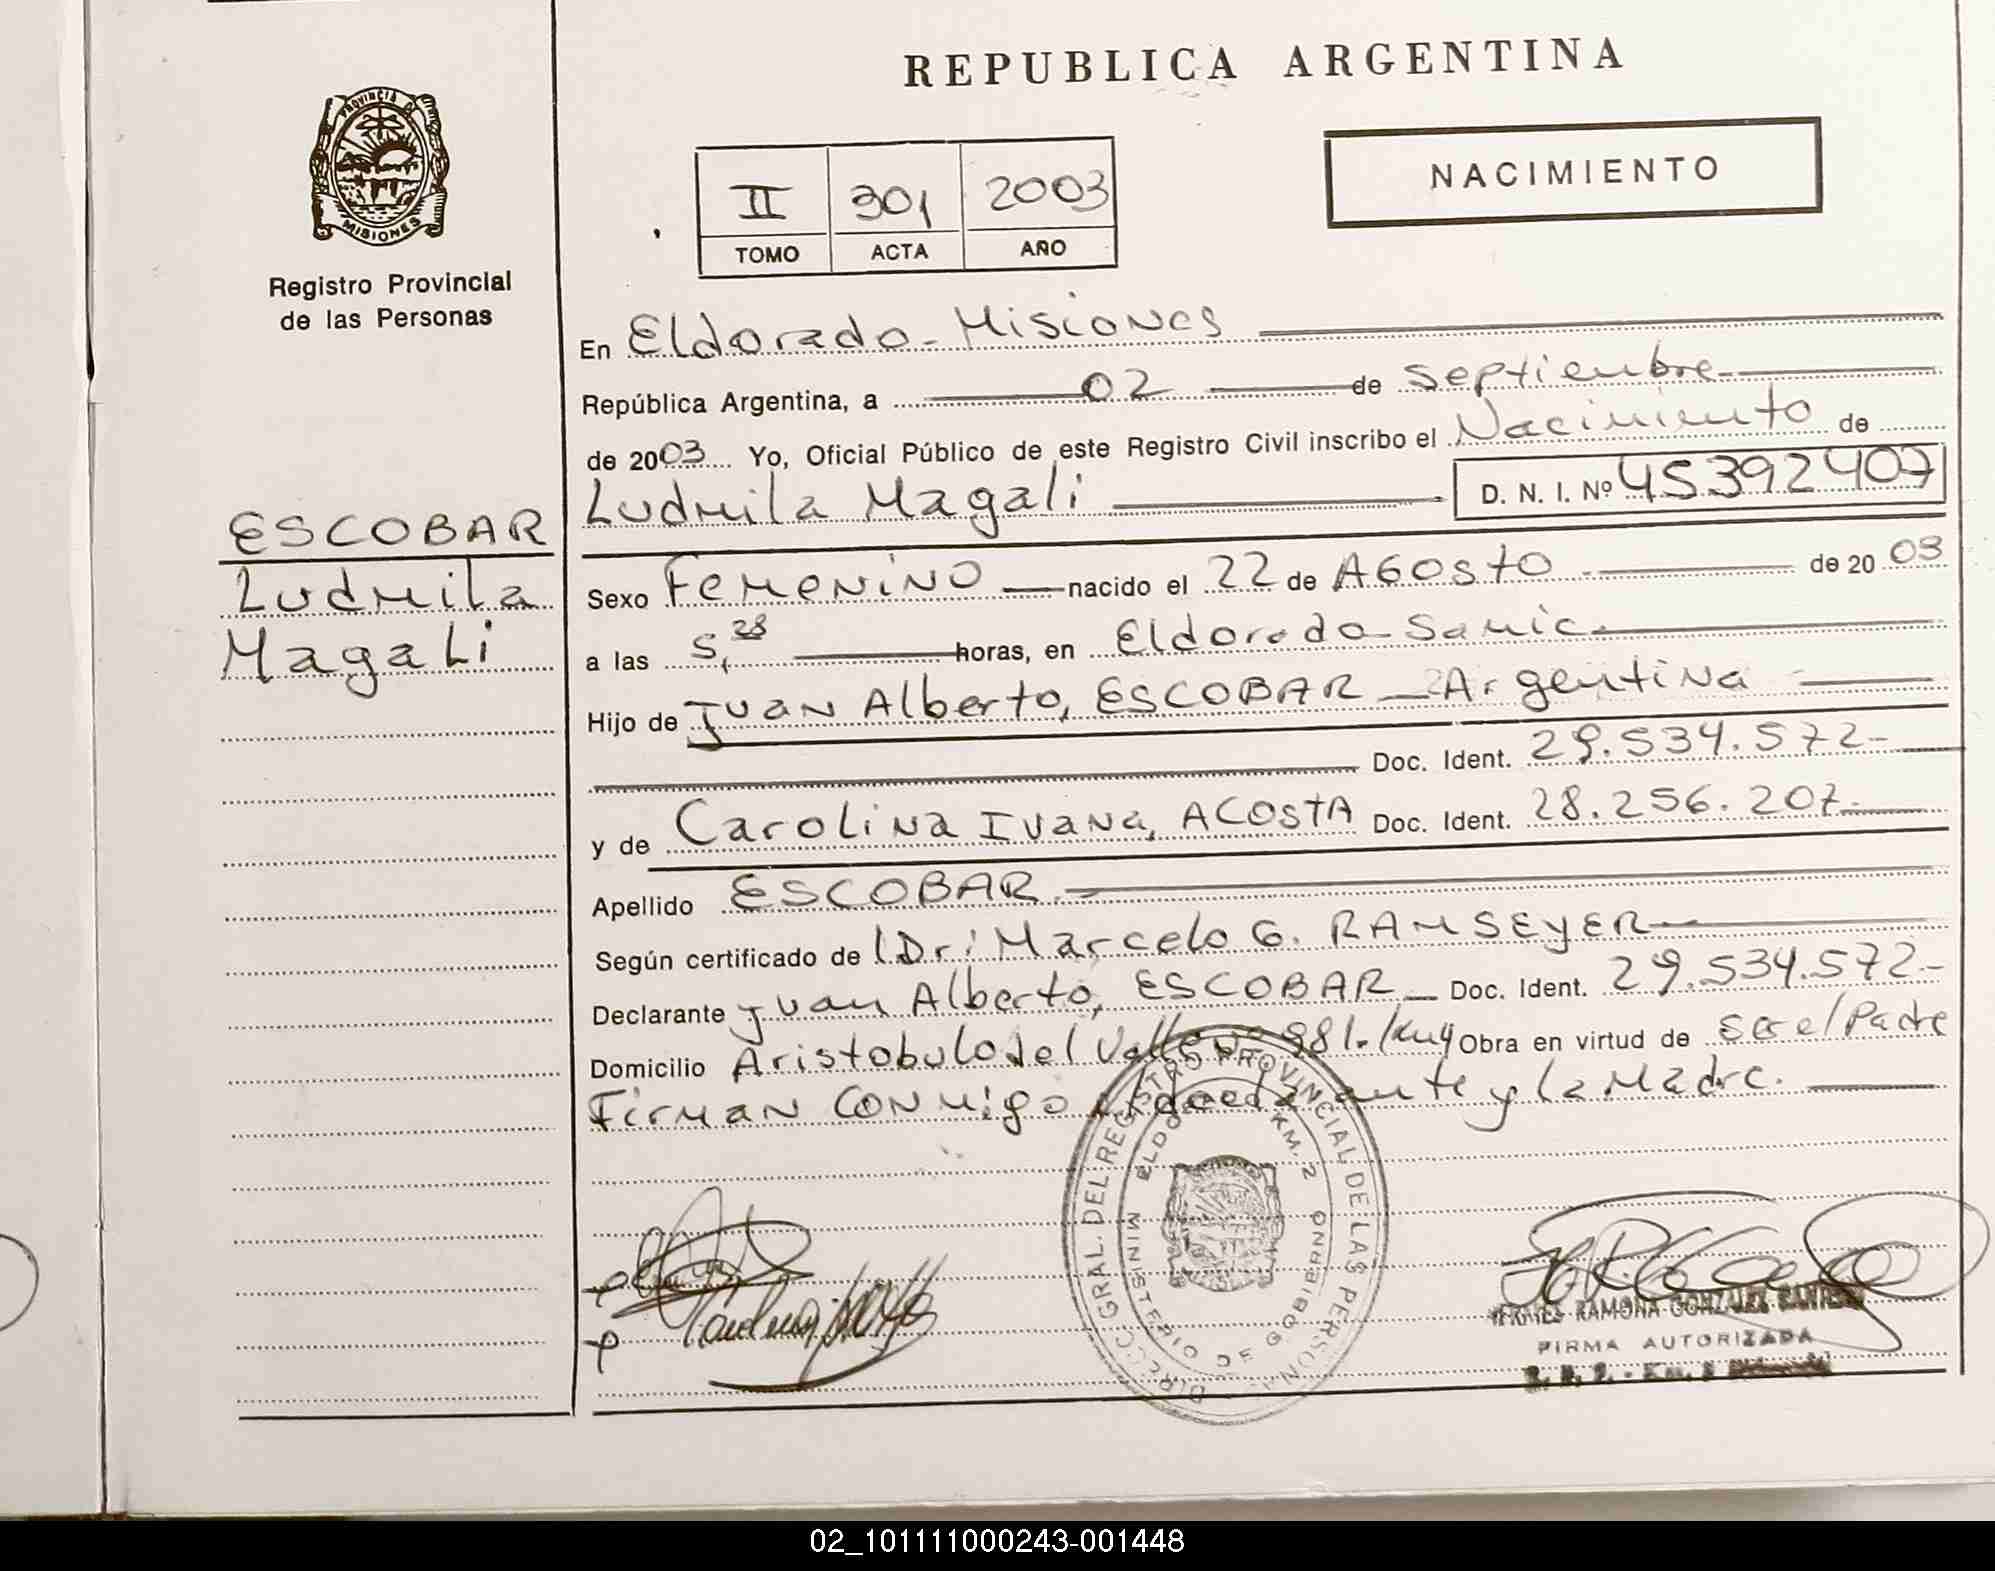 REPUBLICA ARGENTINA
PROVINCIA DE
MISIONES
Registro Provincial
de las Personas
II 301 2003
TOMO ACTA AÑO
NACIMIENTO
En Eldorado - Misiones
República Argentina, a 02 de septiembre
de 2003 Yo, Oficial Público de este Registro Civil inscribo el Nacimiento de
Ludmila Magali D. N. I. Nº 45392407
ESCOBAR
Ludmila
Magali
Sexo Femenino nacido el 22 de Agosto de 2003
a las 5,28 horas, en Eldorado Samic.
Hijo de Juan Alberto, ESCOBAR - Argentina
Doc. Ident. 29.534.572-
y de Carolina Ivana, ACOSTA Doc. Ident. 28.256.207-
Apellido ESCOBAR.-
Según certificado de Dr: Marcelo G. RAMSEYER
Declarante Juan Alberto, ESCOBAR Doc. Ident. 29.534.572.-
Domicilio Aristobulo del Valle Nº 981. Obra en virtud de ser el Padre
Firman conmigo y la Madre.
DIRECC. GRAL. DEL REGISTRO PROVINCIAL DE LAS PERSONAS
ELDORADO KM. 2
MINISTERIO DE GOBIERNO
RAMONA GONZALEZ
FIRMA AUTORIZADA
02_101111000243-001448